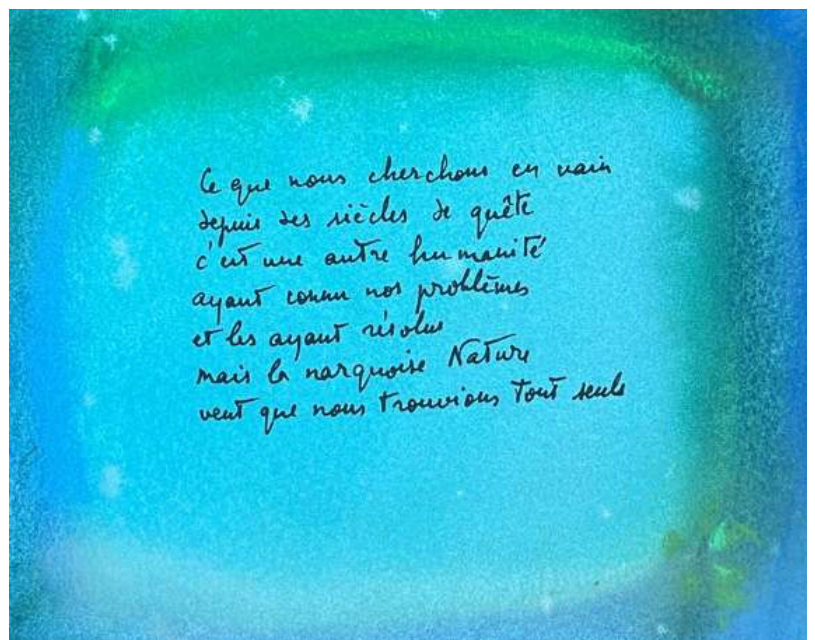 Ce que nous cherchons en vain
depuis des siècles de quête
c'est une autre humanité
ayant connu nos problèmes
et les ayant résolus
mais la narquoise Nature
veut que nous trouvions tout seuls